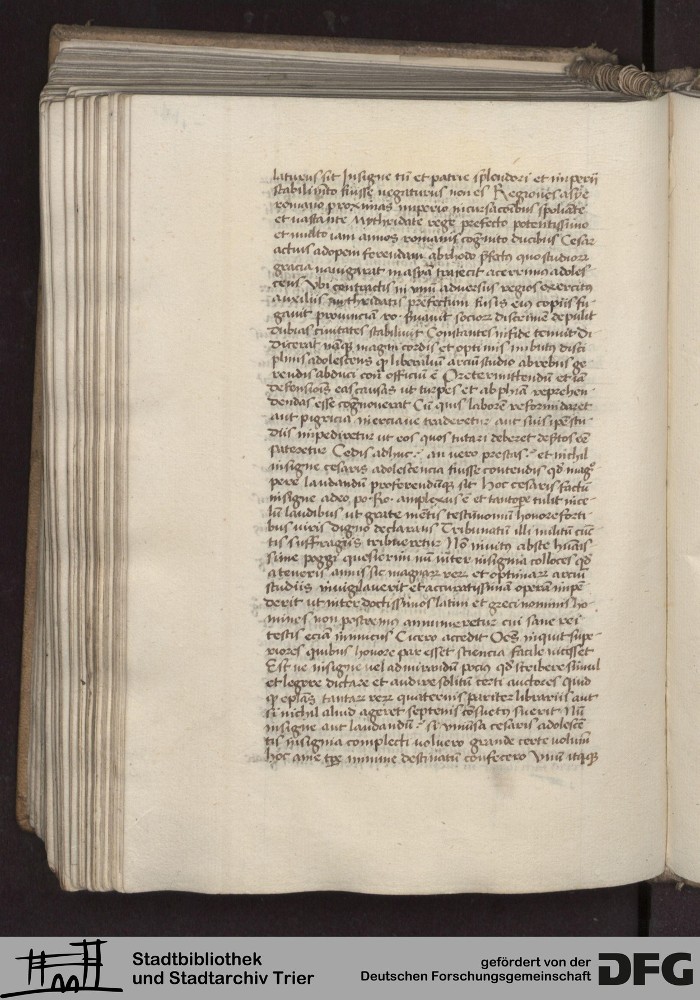 laturus sit Insigne tn̄ et patrie splendori et imperii
stabilim̄to fuisse negaturus non es Regiones asye
romano proximas imperio incursacoībus spoliāte
et vastante Mythridate rege prefecto potentissimo
et multo iam annos romanis cognito ducibus Cesar
actius adopem ferendam abrhodo p̄fectꝰ quo studiorꝝ
gracia navigarat in asyā traiecit acerrimus adoles
cens Vbi contractis in vnū adversus regios exercitꝰ
auxiliis mythridatis prefectum fusis eiꝰ copiis fu
gavit provinciā ro. firmavit socioꝝ discrimē depulit
dubias civitates stabilivit Constantes in fide tenuit Di
dicerat nāqꝫ magni cordis et optimis imbutꝰ disci
plinis adolescens ꝙ liberaliū arciū studio ab rebus ge
rendis abduci cont͂ officiū ē Pretermittendū etiā
defensiōis eas causas ut turpes et ab ph̄ia reprehen
dendas esse cognoverat Cū quis laborē reformidaret
aut pigricia inerciave traderetur aut suis ip̄e stu
diis impediretur ut eos quos tutari deberet desertos eē
pateretur Cedis adhuc? an vero prestas? et nichil
insigne cesaris adolescencia fuisse contendis qd̄ mag°
pere laudandū proferendūqꝫ sit Hoc cesaris factū
insigne adeo po. Ro. amplexus ē et tantope tulit in ce
lū laudibus ut grate mētis testimoniū honore forti
bus viris digno declarans Tribunatū illi militū cūc
tis suffragiis tribueretur Nō invitꝰ abs te hūanis
sime poggi quesierim nū inter insignia colloces qd̄
a teneris annis sic magnaꝝ reꝝ et optimaꝝ arciū
studiis invigilaverit et accuratissimā operā impē
derit ut inter doctissimos latini et greci nominis ho
mines non postremꝰ annumeretur cui sane rei
testis eciā inimicus Cicero accedit Oēs inquit supe
riores quibus honore par esset sciencia facile vicisset
Est ne insigne vel admirandū pocius qd̄ scribere simul
et legere dictare et audire solitū certi auctores Quid
ꝙ ep̄las tantaꝝ reꝝ quaternis pariter librariis aut
si nichil aliud ageret septenis cōsuetꝰ fuerit Nū
insigne aut laudandū? si vniūsa cesaris adolescē
tis insignia complecti voluero grande certe volumē
hoc a me tp̄e minime destinatū confecero Vnū itaqꝫ
Stadtbibliothek
und Stadtarchiv Trier
gefördert von der
Deutschen Forschungsgemeinschaft DFG